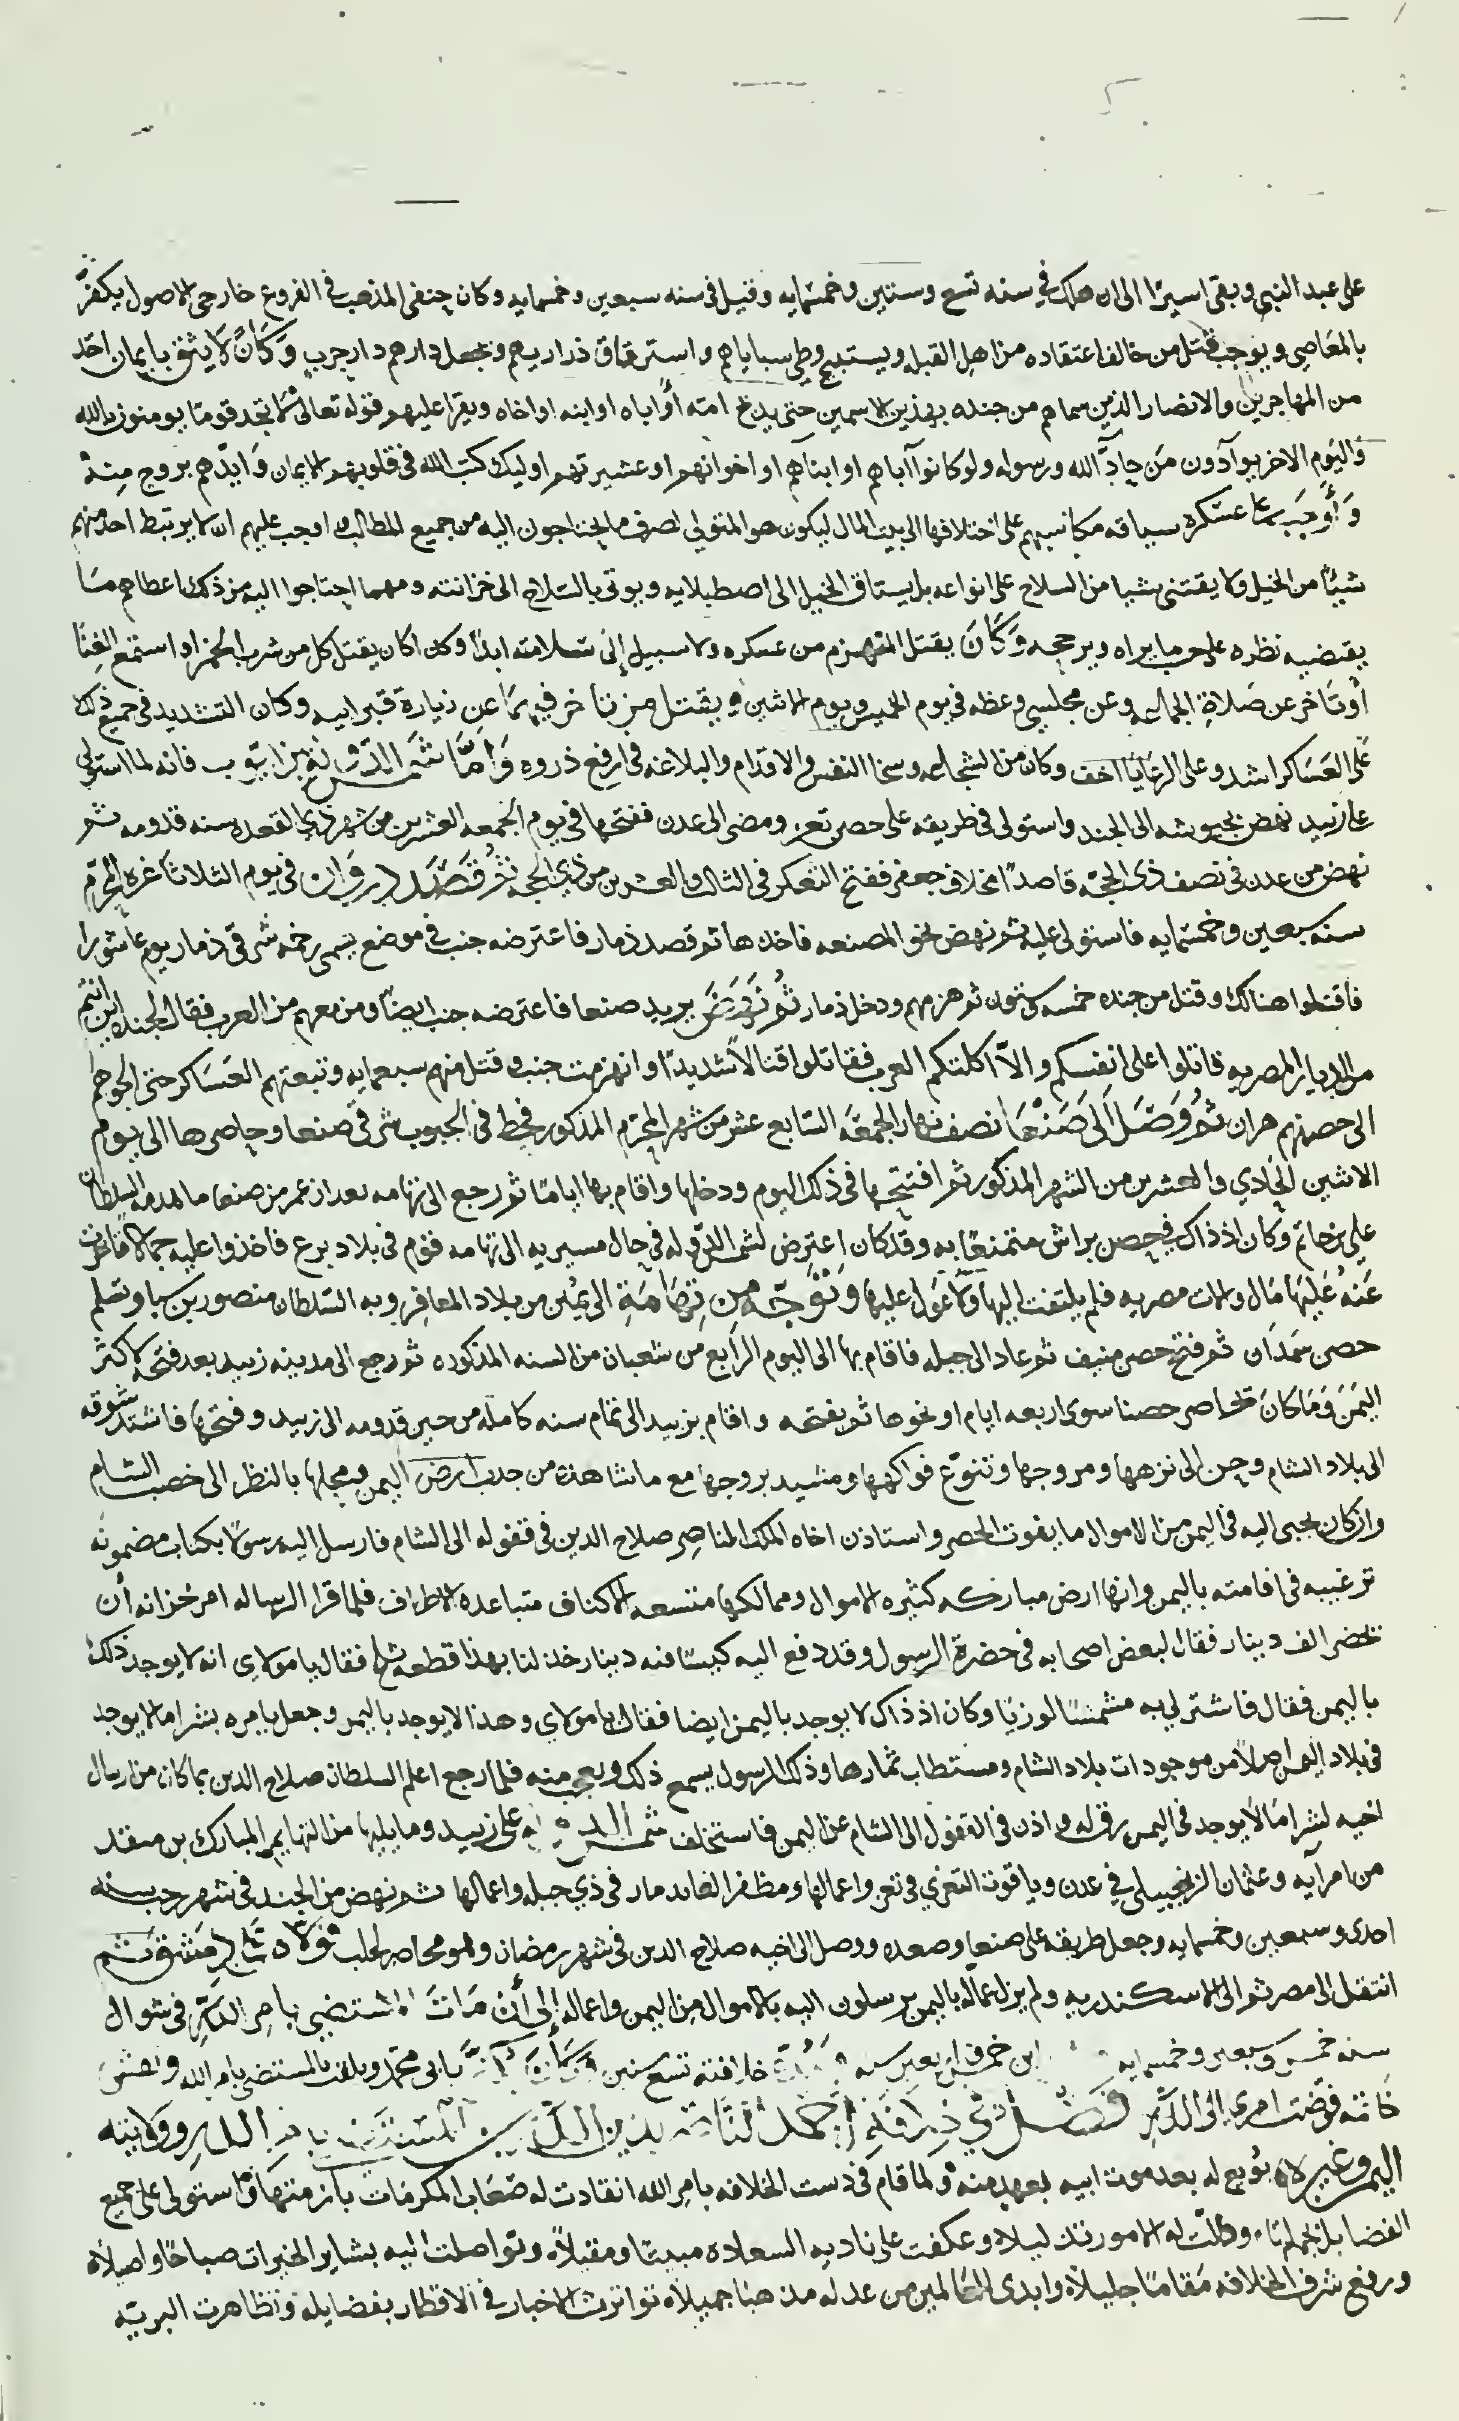 على عبد النبي وبقى اسيرًا الى ان هلك في سنه تسع وستين وخمسمايه وقيل فى سنه سبعين وخمسمايه وكان حنفى المذهب فى الفروع خارجى الاصول يكفر
بالمعاصي ويوجب قتل من خالف اعتقاده من اهل القبله ويستبيح وطي سباياهم واسترقاق ذراريهم وجعل دارهم دار حرب وكان لا يثق بايمان احد
من المهاجرين والانصار الذين سماهم من جنده بهذين الاسمين حتى يذبح امه او اباه او ابنه او اخاه ويقرا عليهم قوله تعالى لا تجد قومًا يومنون بالله
واليوم الاخر يوآدون من حآدّ الله ورسوله ولو كانوا آباهم او ابناهم او اخوانهم او عشيرتهم اوليك كتب الله فى قلوبهم الايمان وايدهم بروح منه
واوجب على عسكره سياقه مكاسبهم على اختلافها الى بيت المال ليكون هو المتولي لصرف ما يحتاجون اليه من جميع المطالب واوجب عليهم ان لا يرتبط احد منهم
شيًا من الخيل ولا يقتنى شيا من السلاح على انواعه بل يستاق الخيل الى اصطبلايه ويوتى بالسلاح الى خزانته ومهما احتاجوا اليه من ذلك اعطاهم ما
يقتضيه نظره على حسب ما يراه ويرجحه وكان يقتل المنهزم من عسكره ولا سبيل إلى سلامته ابدًا وكذا كان يقتل كل من شرب الخمر او استمع الغنا
او تاخر عن صلاة الجماعه وعن مجلسي وعظه فى يوم الخميس ويوم الاثنين ويقتل من تاخر فيهما عن زيارة قبر ابيه وكان التشديد فى جميع ذلك
على العساكر اشد وعلى الرعايا اخف وكان من الشجاعه وسخا النفس والاقدام والبلاغه فى ارفع ذروه واما شمس الدوله بن ايوب فانه لما استولى
على زبيد نهض بجيوشه الى الجند واستولى فى طريقه على حصن تعز ومضى الى عدن ففتحها فى يوم الجمعه العشرين من شهر ذي القعده سنه قدومه ثم
نهض من عدن فى نصف ذى الحجه قاصدًا مخلاف جعفر ففتح التعكر فى الثالث والعشرين من ذي الحجه ثم قصد دروان فى يوم الثلاثا غره المحرم
سنه سبعين وخمسمايه فاستولى عليه ثم نهض نحو المصنعه فاخذها ثم قصد ذمار فاعترضه جنب فى موضع يسمى رخمه شرقى ذمار يوم عاشورا
فاقتتلوا هنالك وقتل من جنده خمسه وستون ثم هزمهم ودخل ذمار ثم نهض يريد صنعا فاعترضه جنب ايضًا ومن معهم من العرب فقال لجنده اين انتم
من الديار المصريه قاتلوا على انفسكم والّا اكلتكم العرب فقاتلوا قتالًا شديدًا وانهزمت جنب وقتل منهم سبعمايه وتبعتهم العساكر حتى الجوهم
الى حصنهم هران ثم وصل الى صنعا نصف نهار الجمعه السابع عشر من شهر المحرم المذكور فحط فى الجبوب شرقى صنعا وحاصرها الى يوم
الاثنين الحادي والعشرين من الشهر المذكور ثم افتتحها فى ذلك اليوم ودخلها واقام بها ايامًا ثم رجع الى تهامه بعد ان عمر من صنعا ما هدمه السلطان
علي بن حاتم وكان اذ ذاك فى حصن براش متمنعًا به وقد كان اعترض لشمس الدوله فى حال مسيره الى تهامه قوم فى بلاد برع فاخذوا عليه جمالًا
عنه عليها مال والات مصريه فلم يلتفت اليها ولا عول عليها وتوجه من تهامة الى يمين من بلاد المعافر وبه السلطان منصور بن سبا وتسلم
حصن سمدان ثم فتح حصن منيف ثم عاد الى جبله فاقام بها الى اليوم الرابع من شعبان من السنه المذكوره ثم رجع الى مدينه زبيد بعد فتحه لاكثر
اليمن وما كان يحاصر حصنا سوى اربعه ايام او نحوها ثم يفتحه واقام بزبيد الى تمام سنه كامله من حين قدومه الى زبيد وفتحها فاشتد شوقه
الى بلاد الشام وحن الى نزهها ومروجها وتنوع فواكهها ومشيد بروجها مع ما شاهده من جدب ارض اليمن ومحلها بالنظر الى خصب الشام
وان كان يجبى اليه فى اليمن من الاموال ما يفوت الحصر واستاذن اخاه الملك الناصر صلاح الدين فى قفوله الى الشام فارسل اليه رسولًا بكتاب مضمونه
ترغيبه فى اقامته باليمن وانها ارض مباركه كثيره الاموال وممالكها متسعه الاكناف متباعده الاطراف فلما قرا الرساله امر خزانه أن
تحضر الف دينار فقال لبعض اصحابه فى حضرة الرسول وقد دفع اليه كيسًا فيه دينار خذ لنا بهذا قطعه ثلج فقال يا مولاى انه لا يوجد ذلك
باليمن فقال فاشتر لي به مشمشًا لوزيًا وكان اذ ذاك لا يوجد باليمن ايضا فقال يا مولاي وهذا لا يوجد باليمن وجعل يامره بشرا ما لا يوجد
فى بلاد اليمن اصلًا من موجودات بلاد الشام ومستطاب ثمارها وذلك الرسول يسمع ذلك ويعجب منه فلما رجع اعلم السلطان صلاح الدين بما كان من ارسال
اخيه لشرا ما لا يوجد فى اليمن فرق له واذن فى القفول الى الشام عن اليمن فاستخلف شمس الدوله على زبيد وما يليها من التهايم المبارك بن منقد
من امرآيه وعثمان الزنجبيلى فى عدن وياقوت التعزي فى تعز واعمالها ومظفر القايد مار فى ذي جبله واعمالها ثم نهض من الجند فى شهر رجب سنه
احدى وسبعين وخمسمايه وجعل طريقه على صنعا وصعده ووصل الى اخيه صلاح الدين فى شهر رمضان وهو محاصر لحلب فولاه نيابه دمشق ثم
انتقل الى مصر ثم الى الاسكندريه ولم يزل عماله باليمن يرسلون اليه بالاموال من اليمن واعماله إلى أن مات المستضى بامر الله فى شوال
سنه خمس وسبعين وخمسمايه ابن خمس واربعين سنه خلافته تسع سنين وكان يكنى بابى محمد ويلقب بالمستضى بامر الله ونقش
خاتمه فوضت امرى الى الله فصل في خلافة احمد الناصر لدين الله بن المستضى بامر الله وولاته
اليمن وغيره بويع له بعد موت ابيه بعهد منه ولما قام فى دست الخلافه بامر الله انقادت له صعاب المكرمات بازمتها واستولى على جميع
الفضايل بجملتها وذللت له الامور تذليلا وعكفت على ناديه السعاده مبيتًا ومقيلًا وتواصلت اليه بشاير الخيرات صباحًا واصيلًا
ورفع شرف الخلافه مقامًا جليلًا وابدى للعالمين من عدله مذهبًا جميلًا تواترت الاخبار فى الاقطار بفضايله وتظاهرت البريه